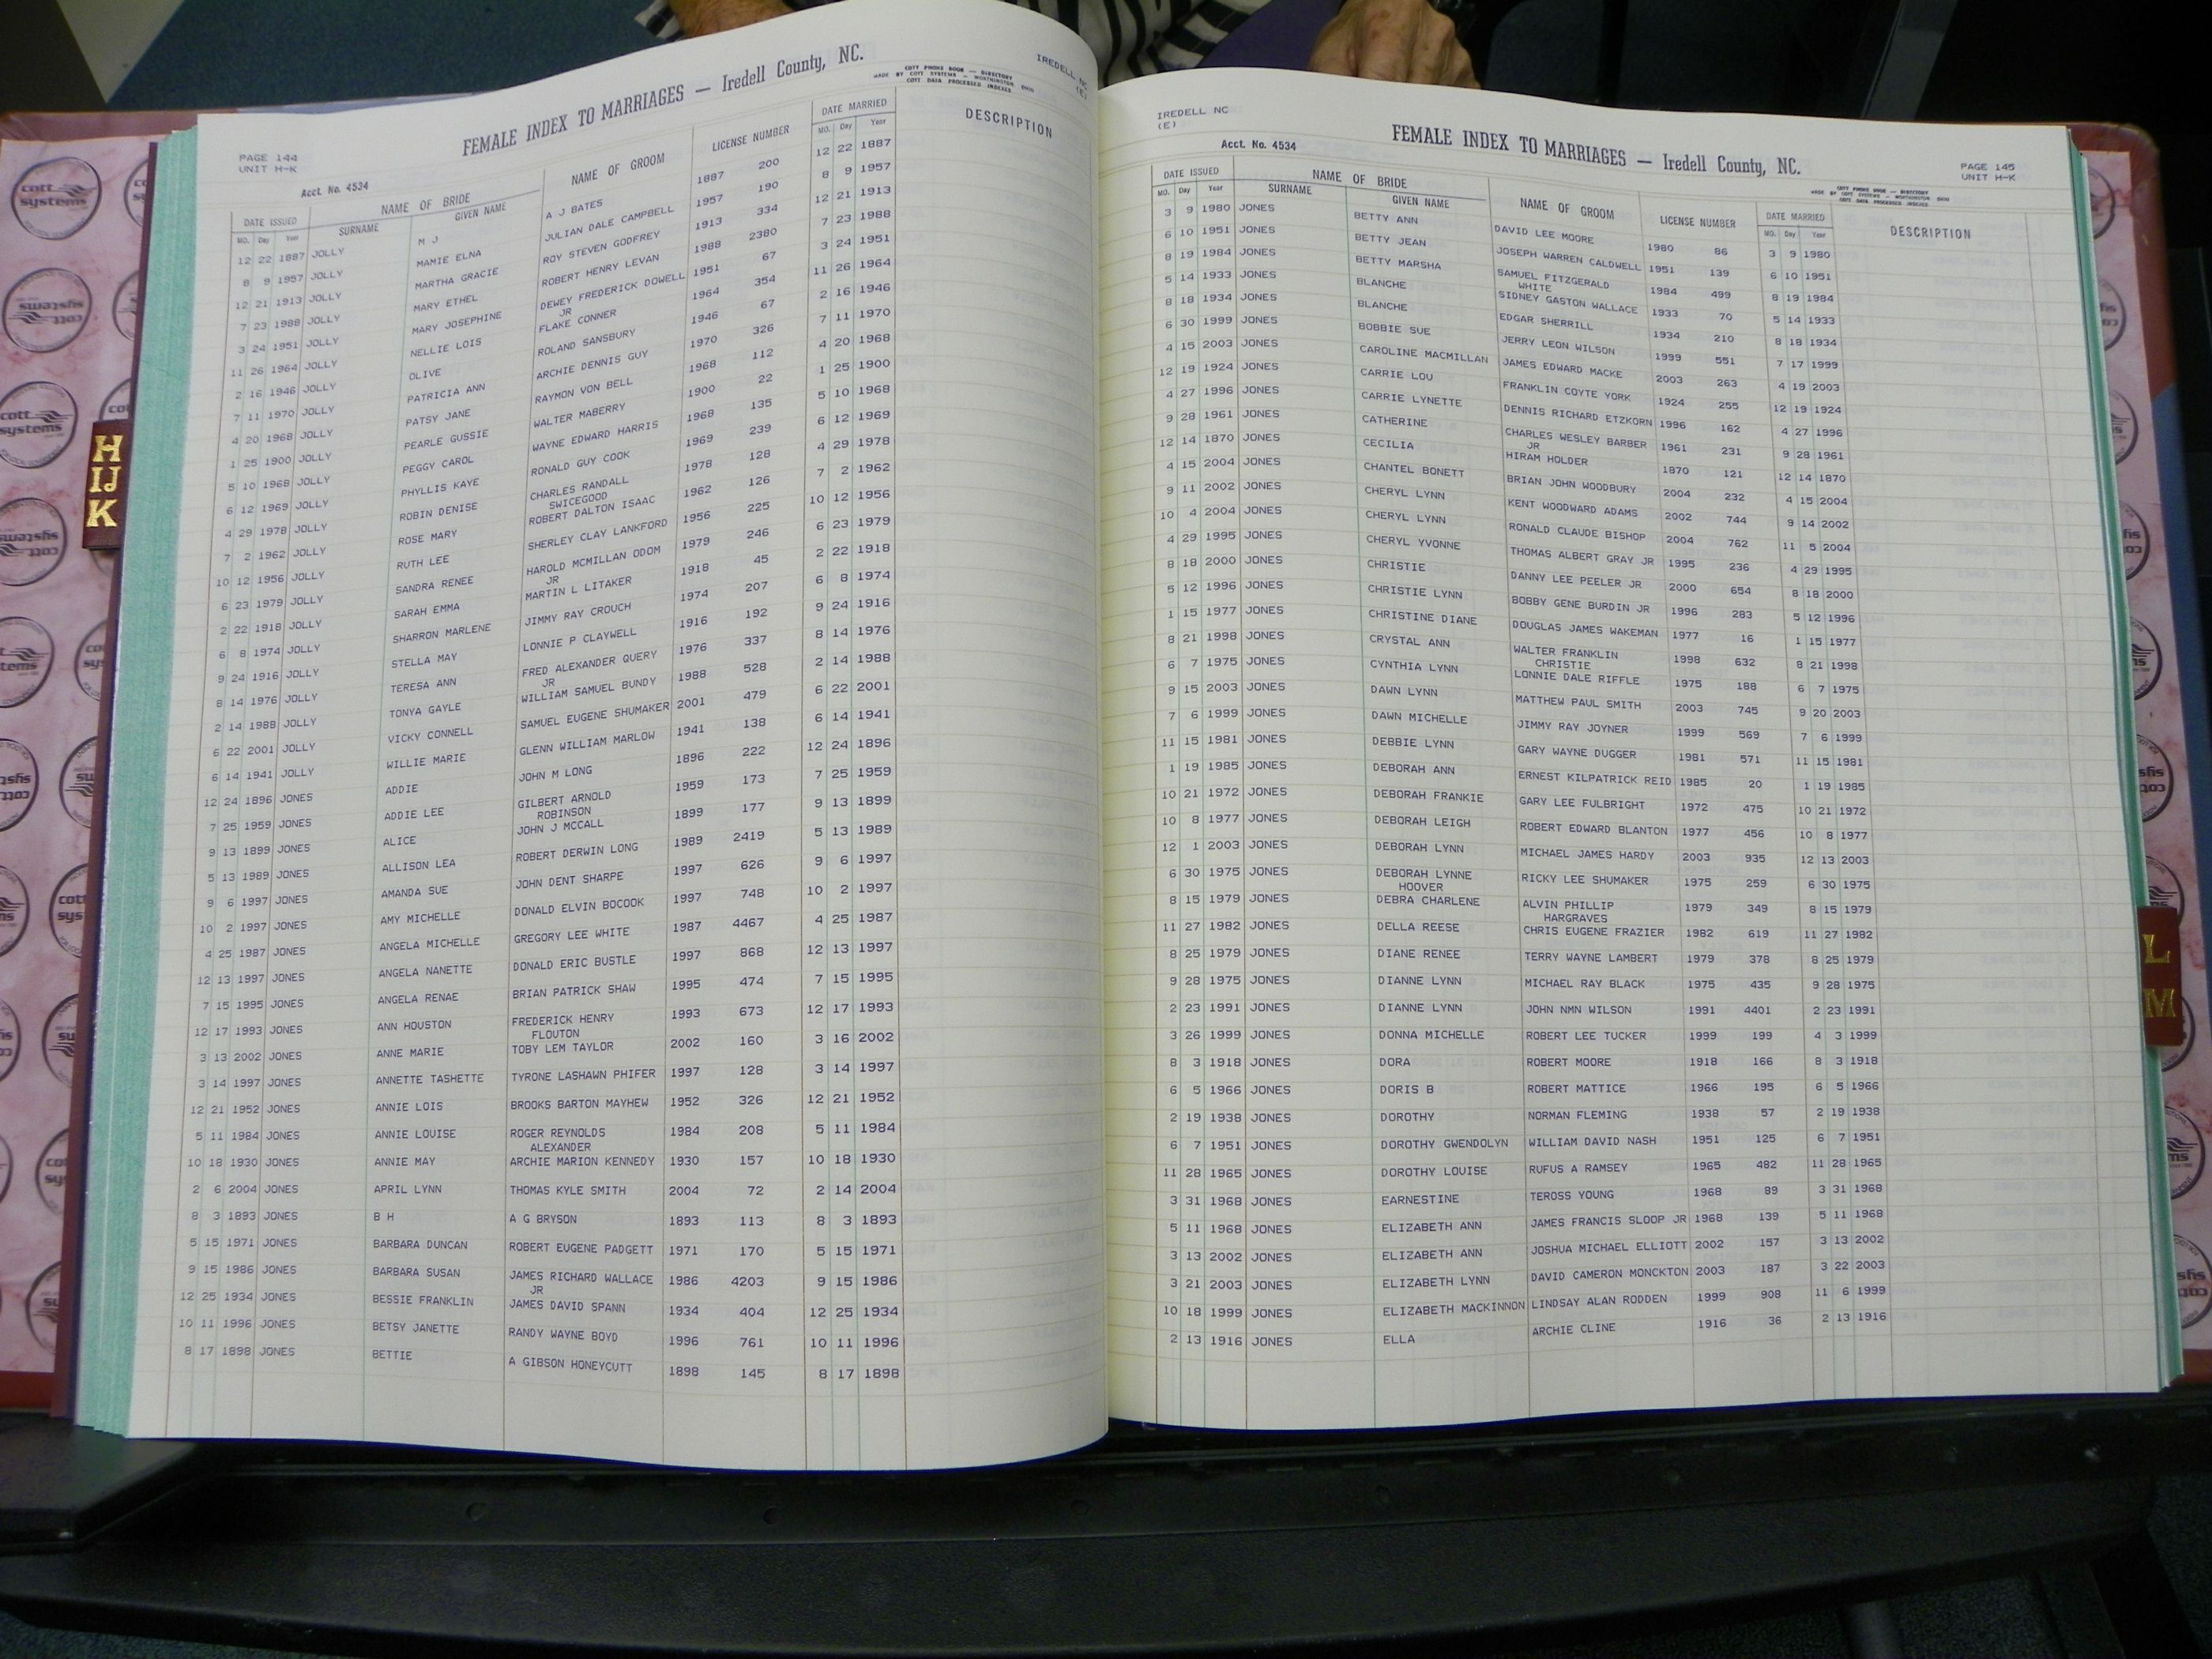 IREDELL NC
(E)
PAGE 144
UNIT H-K
Acct. No. 4534
FEMALE INDEX TO MARRIAGES — Iredell County, NC.
COTT PHONE BOOK — DIRECTORY
MADE BY COTT SYSTEMS — WORTHINGTON, OHIO
COTT DATA PROCESSED INDEXES
DATE ISSUED NAME OF BRIDE NAME OF GROOM LICENSE NUMBER DATE MARRIED DESCRIPTION
MO. Day Year SURNAME GIVEN NAME MO. Day Year
12 22 1887 JOLLY M J A J BATES 1887 200 12 22 1887
8 9 1957 JOLLY MAMIE ELNA JULIAN DALE CAMPBELL 1957 190 8 9 1957
12 21 1913 JOLLY MARTHA GRACIE ROY STEVEN GODFREY 1913 334 12 21 1913
7 23 1988 JOLLY MARY ETHEL ROBERT HENRY LEVAN 1988 2380 7 23 1988
3 24 1951 JOLLY MARY JOSEPHINE DEWEY FREDERICK DOWELL 1951 67 3 24 1951
JR
11 26 1964 JOLLY NELLIE LOIS FLAKE CONNER 1964 354 11 26 1964
2 16 1946 JOLLY OLIVE ROLAND SANSBURY 1946 67 2 16 1946
7 11 1970 JOLLY PATRICIA ANN ARCHIE DENNIS GUY 1970 326 7 11 1970
4 20 1968 JOLLY PATSY JANE RAYMON VON BELL 1968 112 4 20 1968
1 25 1900 JOLLY PEARLE GUSSIE WALTER MABERRY 1900 22 1 25 1900
5 10 1968 JOLLY PEGGY CAROL WAYNE EDWARD HARRIS 1968 135 5 10 1968
6 12 1969 JOLLY PHYLLIS KAYE RONALD GUY COOK 1969 239 6 12 1969
4 29 1978 JOLLY ROBIN DENISE CHARLES RANDALL 1978 128 4 29 1978
SWICEGOOD
7 2 1962 JOLLY ROSE MARY ROBERT DALTON ISAAC 1962 126 7 2 1962
10 12 1956 JOLLY RUTH LEE SHERLEY CLAY LANKFORD 1956 225 10 12 1956
6 23 1979 JOLLY SANDRA RENEE HAROLD MCMILLAN ODOM 1979 246 6 23 1979
JR
2 22 1918 JOLLY SARAH EMMA MARTIN L LITAKER 1918 45 2 22 1918
6 8 1974 JOLLY SHARRON MARLENE JIMMY RAY CROUCH 1974 207 6 8 1974
9 24 1916 JOLLY STELLA MAY LONNIE P CLAYWELL 1916 192 9 24 1916
8 14 1976 JOLLY TERESA ANN FRED ALEXANDER QUERY 1976 337 8 14 1976
JR
2 14 1988 JOLLY TONYA GAYLE WILLIAM SAMUEL BUNDY 1988 528 2 14 1988
6 22 2001 JOLLY VICKY CONNELL SAMUEL EUGENE SHUMAKER 2001 479 6 22 2001
6 14 1941 JOLLY WILLIE MARIE GLENN WILLIAM MARLOW 1941 138 6 14 1941
12 24 1896 JONES ADDIE JOHN M LONG 1896 222 12 24 1896
7 25 1959 JONES ADDIE LEE GILBERT ARNOLD 1959 173 7 25 1959
ROBINSON
9 13 1899 JONES ALICE JOHN J MCCALL 1899 177 9 13 1899
5 13 1989 JONES ALLISON LEA ROBERT DERWIN LONG 1989 2419 5 13 1989
9 6 1997 JONES AMANDA SUE JOHN DENT SHARPE 1997 626 9 6 1997
10 2 1997 JONES AMY MICHELLE DONALD ELVIN BOCOOK 1997 748 10 2 1997
4 25 1987 JONES ANGELA MICHELLE GREGORY LEE WHITE 1987 4467 4 25 1987
12 13 1997 JONES ANGELA NANETTE DONALD ERIC BUSTLE 1997 868 12 13 1997
7 15 1995 JONES ANGELA RENAE BRIAN PATRICK SHAW 1995 474 7 15 1995
12 17 1993 JONES ANN HOUSTON FREDERICK HENRY 1993 673 12 17 1993
FLOUTON
3 13 2002 JONES ANNE MARIE TOBY LEM TAYLOR 2002 160 3 16 2002
3 14 1997 JONES ANNETTE TASHETTE TYRONE LASHAWN PHIFER 1997 128 3 14 1997
12 21 1952 JONES ANNIE LOIS BROOKS BARTON MAYHEW 1952 326 12 21 1952
5 11 1984 JONES ANNIE LOUISE ROGER REYNOLDS 1984 208 5 11 1984
ALEXANDER
10 18 1930 JONES ANNIE MAY ARCHIE MARION KENNEDY 1930 157 10 18 1930
2 6 2004 JONES APRIL LYNN THOMAS KYLE SMITH 2004 72 2 14 2004
8 3 1893 JONES B H A G BRYSON 1893 113 8 3 1893
5 15 1971 JONES BARBARA DUNCAN ROBERT EUGENE PADGETT 1971 170 5 15 1971
9 15 1986 JONES BARBARA SUSAN JAMES RICHARD WALLACE 1986 4203 9 15 1986
JR
12 25 1934 JONES BESSIE FRANKLIN JAMES DAVID SPANN 1934 404 12 25 1934
10 11 1996 JONES BETSY JANETTE RANDY WAYNE BOYD 1996 761 10 11 1996
8 17 1898 JONES BETTIE A GIBSON HONEYCUTT 1898 145 8 17 1898
IREDELL NC
(E)
Acct. No. 4534
FEMALE INDEX TO MARRIAGES — Iredell County, NC.
PAGE 145
UNIT H-K
COTT PHONE BOOK — DIRECTORY
MADE BY COTT SYSTEMS — WORTHINGTON, OHIO
COTT DATA PROCESSED INDEXES
DATE ISSUED NAME OF BRIDE NAME OF GROOM LICENSE NUMBER DATE MARRIED DESCRIPTION
MO. Day Year SURNAME GIVEN NAME MO. Day Year
3 9 1980 JONES BETTY ANN DAVID LEE MOORE 1980 86 3 9 1980
6 10 1951 JONES BETTY JEAN JOSEPH WARREN CALDWELL 1951 139 6 10 1951
8 19 1984 JONES BETTY MARSHA SAMUEL FITZGERALD 1984 499 8 19 1984
WHITE
5 14 1933 JONES BLANCHE SIDNEY GASTON WALLACE 1933 70 5 14 1933
8 18 1934 JONES BLANCHE EDGAR SHERRILL 1934 210 8 18 1934
6 30 1999 JONES BOBBIE SUE JERRY LEON WILSON 1999 551 7 17 1999
4 15 2003 JONES CAROLINE MACMILLAN JAMES EDWARD MACKE 2003 263 4 19 2003
12 19 1924 JONES CARRIE LOU FRANKLIN COYTE YORK 1924 255 12 19 1924
4 27 1996 JONES CARRIE LYNETTE DENNIS RICHARD ETZKORN 1996 162 4 27 1996
9 28 1961 JONES CATHERINE CHARLES WESLEY BARBER 1961 231 9 28 1961
JR
12 14 1870 JONES CECILIA HIRAM HOLDER 1870 121 12 14 1870
4 15 2004 JONES CHANTEL BONETT BRIAN JOHN WOODBURY 2004 232 4 15 2004
9 11 2002 JONES CHERYL LYNN KENT WOODWARD ADAMS 2002 744 9 14 2002
10 4 2004 JONES CHERYL LYNN RONALD CLAUDE BISHOP 2004 762 11 5 2004
4 29 1995 JONES CHERYL YVONNE THOMAS ALBERT GRAY JR 1995 236 4 29 1995
8 18 2000 JONES CHRISTIE DANNY LEE PEELER JR 2000 654 8 18 2000
5 12 1996 JONES CHRISTIE LYNN BOBBY GENE BURDIN JR 1996 283 5 12 1996
1 15 1977 JONES CHRISTINE DIANE DOUGLAS JAMES WAKEMAN 1977 16 1 15 1977
8 21 1998 JONES CRYSTAL ANN WALTER FRANKLIN 1998 632 8 21 1998
CHRISTIE
6 7 1975 JONES CYNTHIA LYNN LONNIE DALE RIFFLE 1975 188 6 7 1975
9 15 2003 JONES DAWN LYNN MATTHEW PAUL SMITH 2003 745 9 20 2003
7 6 1999 JONES DAWN MICHELLE JIMMY RAY JOYNER 1999 569 7 6 1999
11 15 1981 JONES DEBBIE LYNN GARY WAYNE DUGGER 1981 571 11 15 1981
1 19 1985 JONES DEBORAH ANN ERNEST KILPATRICK REID 1985 20 1 19 1985
10 21 1972 JONES DEBORAH FRANKIE GARY LEE FULBRIGHT 1972 475 10 21 1972
10 8 1977 JONES DEBORAH LEIGH ROBERT EDWARD BLANTON 1977 456 10 8 1977
12 1 2003 JONES DEBORAH LYNN MICHAEL JAMES HARDY 2003 935 12 13 2003
6 30 1975 JONES DEBORAH LYNNE RICKY LEE SHUMAKER 1975 259 6 30 1975
HOOVER
8 15 1979 JONES DEBRA CHARLENE ALVIN PHILLIP 1979 349 8 15 1979
HARGRAVES
11 27 1982 JONES DELLA REESE CHRIS EUGENE FRAZIER 1982 619 11 27 1982
8 25 1979 JONES DIANE RENEE TERRY WAYNE LAMBERT 1979 378 8 25 1979
9 28 1975 JONES DIANNE LYNN MICHAEL RAY BLACK 1975 435 9 28 1975
2 23 1991 JONES DIANNE LYNN JOHN NMN WILSON 1991 4401 2 23 1991
3 26 1999 JONES DONNA MICHELLE ROBERT LEE TUCKER 1999 199 4 3 1999
8 3 1918 JONES DORA ROBERT MOORE 1918 166 8 3 1918
6 5 1966 JONES DORIS B ROBERT MATTICE 1966 195 6 5 1966
2 19 1938 JONES DOROTHY NORMAN FLEMING 1938 57 2 19 1938
6 7 1951 JONES DOROTHY GWENDOLYN WILLIAM DAVID NASH 1951 125 6 7 1951
11 28 1965 JONES DOROTHY LOUISE RUFUS A RAMSEY 1965 482 11 28 1965
3 31 1968 JONES EARNESTINE TEROSS YOUNG 1968 89 3 31 1968
5 11 1968 JONES ELIZABETH ANN JAMES FRANCIS SLOOP JR 1968 139 5 11 1968
3 13 2002 JONES ELIZABETH ANN JOSHUA MICHAEL ELLIOTT 2002 157 3 13 2002
3 21 2003 JONES ELIZABETH LYNN DAVID CAMERON MONCKTON 2003 187 3 22 2003
10 18 1999 JONES ELIZABETH MACKINNON LINDSAY ALAN RODDEN 1999 908 11 6 1999
2 13 1916 JONES ELLA ARCHIE CLINE 1916 36 2 13 1916
H
IJ
K
L
M
cott systems